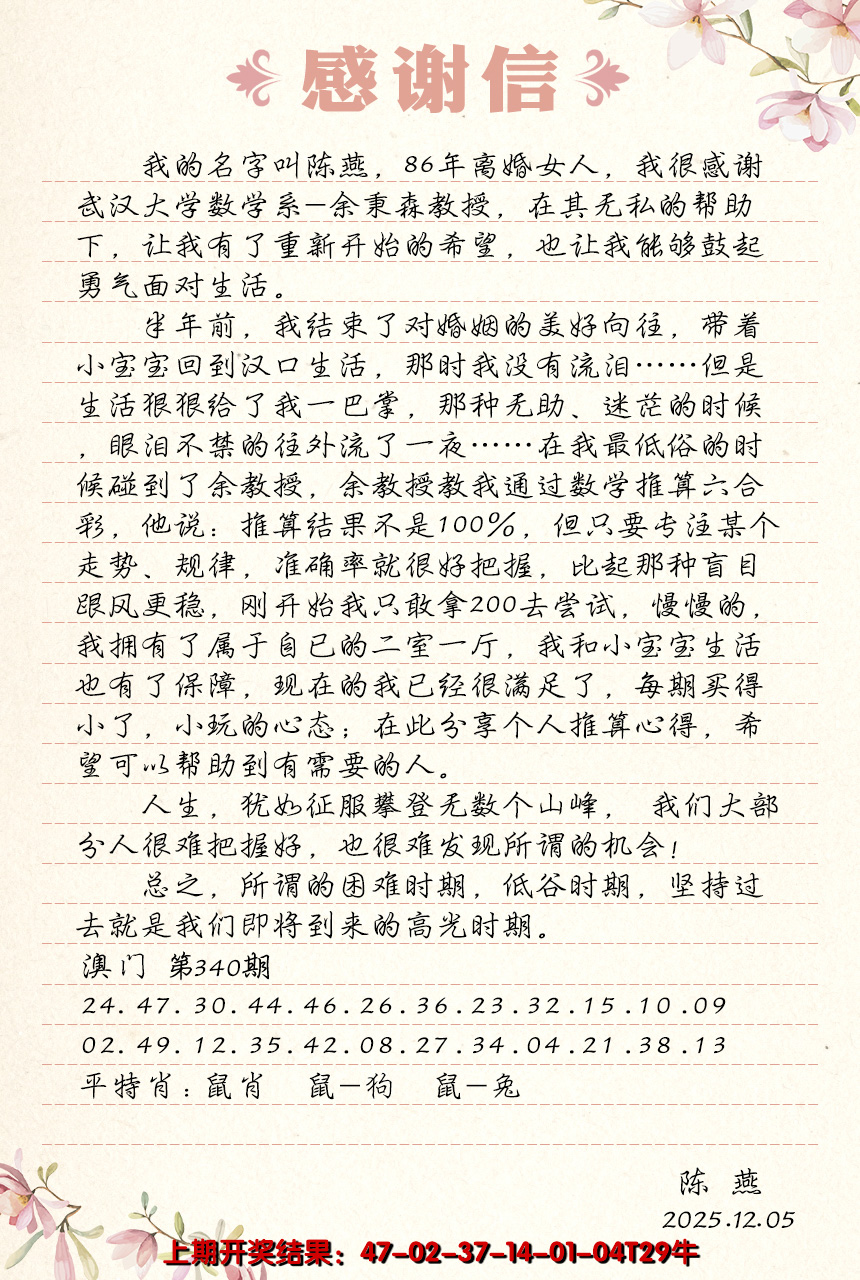 感谢信
我的名字叫陈燕，86年离婚女人，我很感谢
武汉大学数学系—余秉森教授，在其无私的帮助
下，让我有了重新开始的希望，也让我能够鼓起
勇气面对生活。
半年前，我结束了对婚姻的美好向往，带着
小宝宝回到汉口生活，那时我没有流泪……但是
生活狠狠给了我一巴掌，那种无助、迷茫的时候
，眼泪不禁的往外流了一夜……在我最低俗的时
候碰到了余教授，余教授教我通过数学推算六合
彩，他说：推算结果不是100%，但只要专注某个
走势、规律，准确率就很好把握，比起那种盲目
跟风更稳，刚开始我只敢拿200去尝试，慢慢的，
我拥有了属于自已的二室一厅，我和小宝宝生活
也有了保障，现在的我已经很满足了，每期买得
小了，小玩的心态；在此分享个人推算心得，希
望可以帮助到有需要的人。
人生，犹如征服攀登无数个山峰， 我们大部
分人很难把握好，也很难发现所谓的机会！
总之，所谓的困难时期，低谷时期，坚持过
去就是我们即将到来的高光时期。
澳门 第340期
24.47.30.44.46.26.36.23.32.15.10.09
02.49.12.35.42.08.27.34.04.21.38.13
平特肖：鼠肖 鼠—狗 鼠—兔
陈 燕
2025.12.05
上期开奖结果：47-02-37-14-01-04T29牛